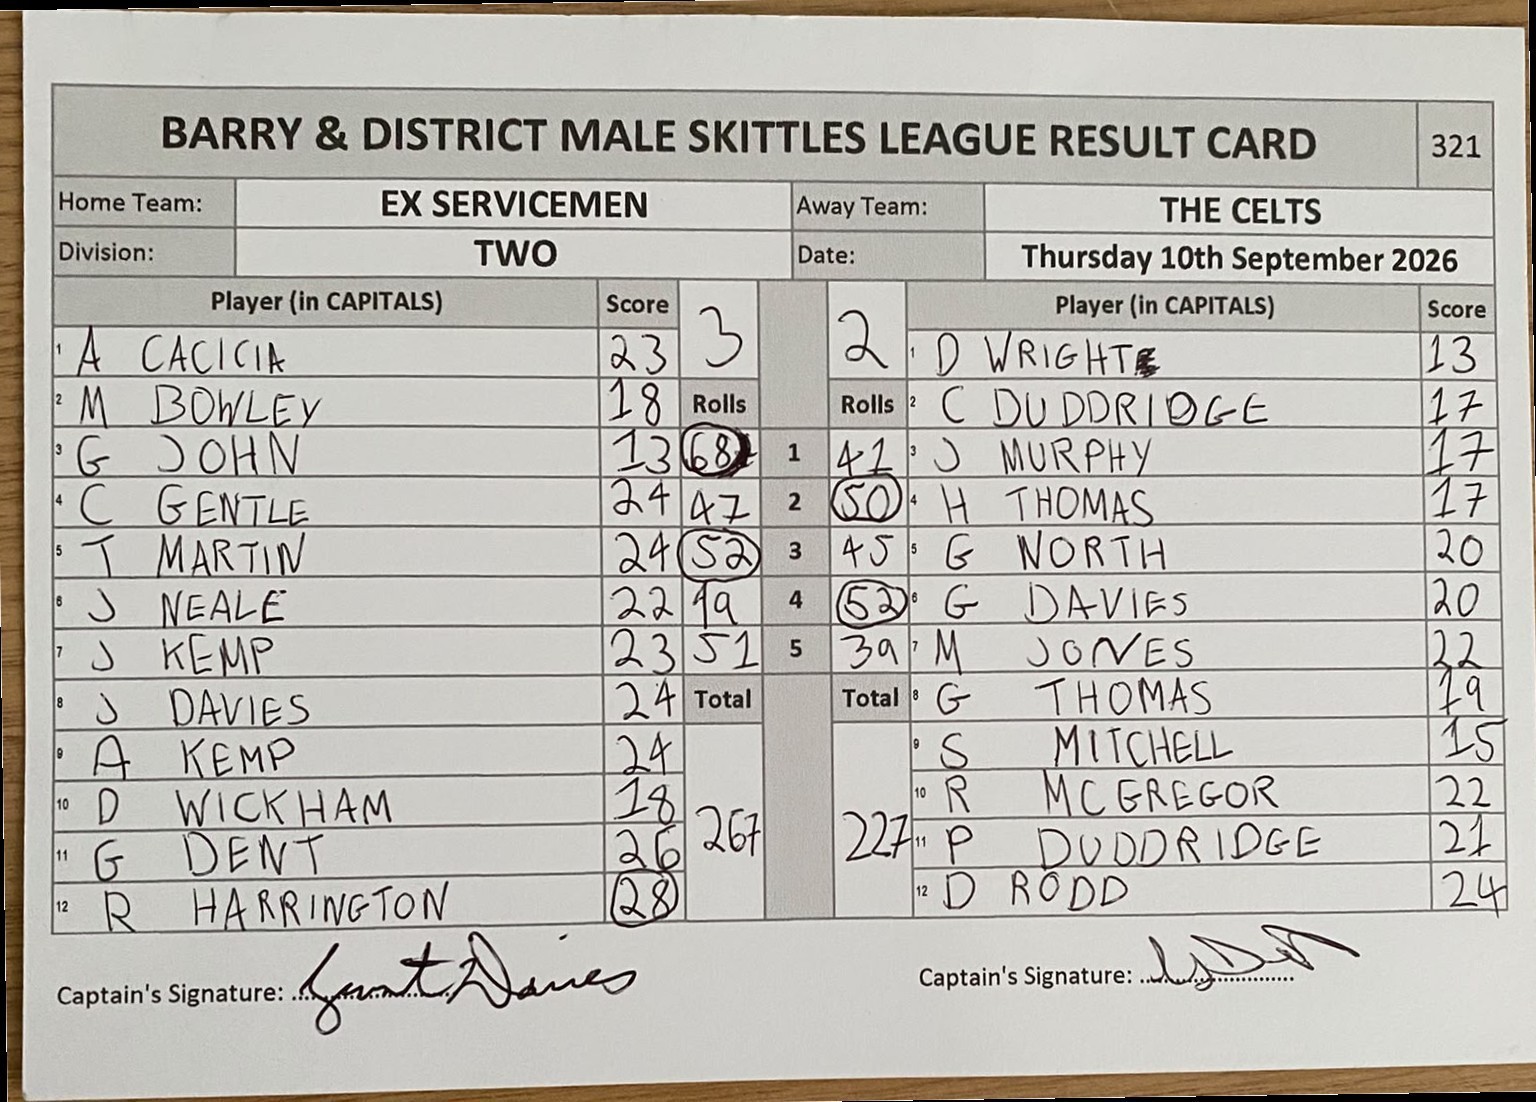 BARRY & DISTRICT MALE SKITTLES LEAGUE RESULT CARD 321
Home Team: EX SERVICEMEN Away Team: THE CELTS
Division: TWO Date: Thursday 10th September 2026
Player (in CAPITALS) Score 3 2 Player (in CAPITALS) Score
1 A CACICIA 23 1 D WRIGHT 13
2 M BOWLEY 18 Rolls Rolls 2 C DUDDRIDGE 17
3 G JOHN 13 68 1 41 3 J MURPHY 17
4 C GENTLE 24 47 2 50 4 H THOMAS 17
5 T MARTIN 24 52 3 45 5 G NORTH 20
6 J NEALE 22 49 4 52 6 G DAVIES 20
7 J KEMP 23 51 5 39 7 M JONES 22
8 J DAVIES 24 Total Total 8 G THOMAS 19
9 A KEMP 24 9 S MITCHELL 15
10 D WICKHAM 18 267 227 10 R MCGREGOR 22
11 G DENT 26 11 P DUDDRIDGE 21
12 R HARRINGTON 28 12 D RODD 24
Captain's Signature: Grant Davies Captain's Signature: